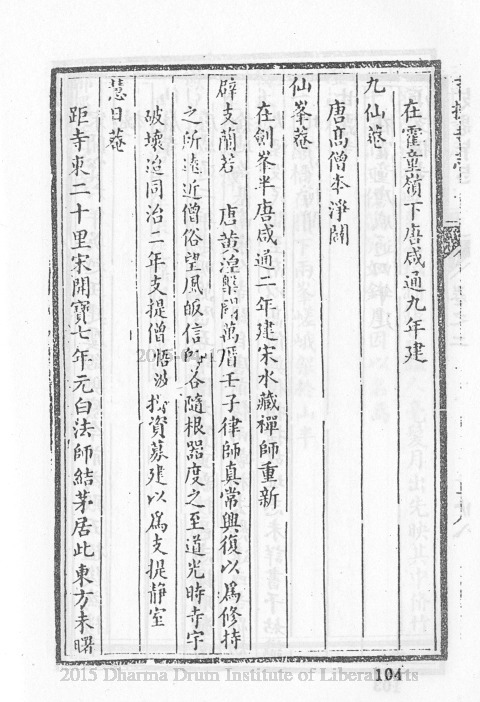 在霍童嶺下唐咸通九年建
九仙菴
唐高僧本淨闢
仙峯菴
在劍峯半唐咸通二年建宋水藏禪師重新
辟支蘭若 唐黃涅槃闢萬曆壬子律師真常興復以爲修持
之所遠近僧俗望風皈信師各隨根器度之至道光時寺宇
破壞迨同治二年支提僧悟 資募建以爲支提靜室
慧日菴
距寺東二十里宋開寶七年元白法師結茅居此東方未曙
104
2015 Dharma Drum Institute of Liberal Arts